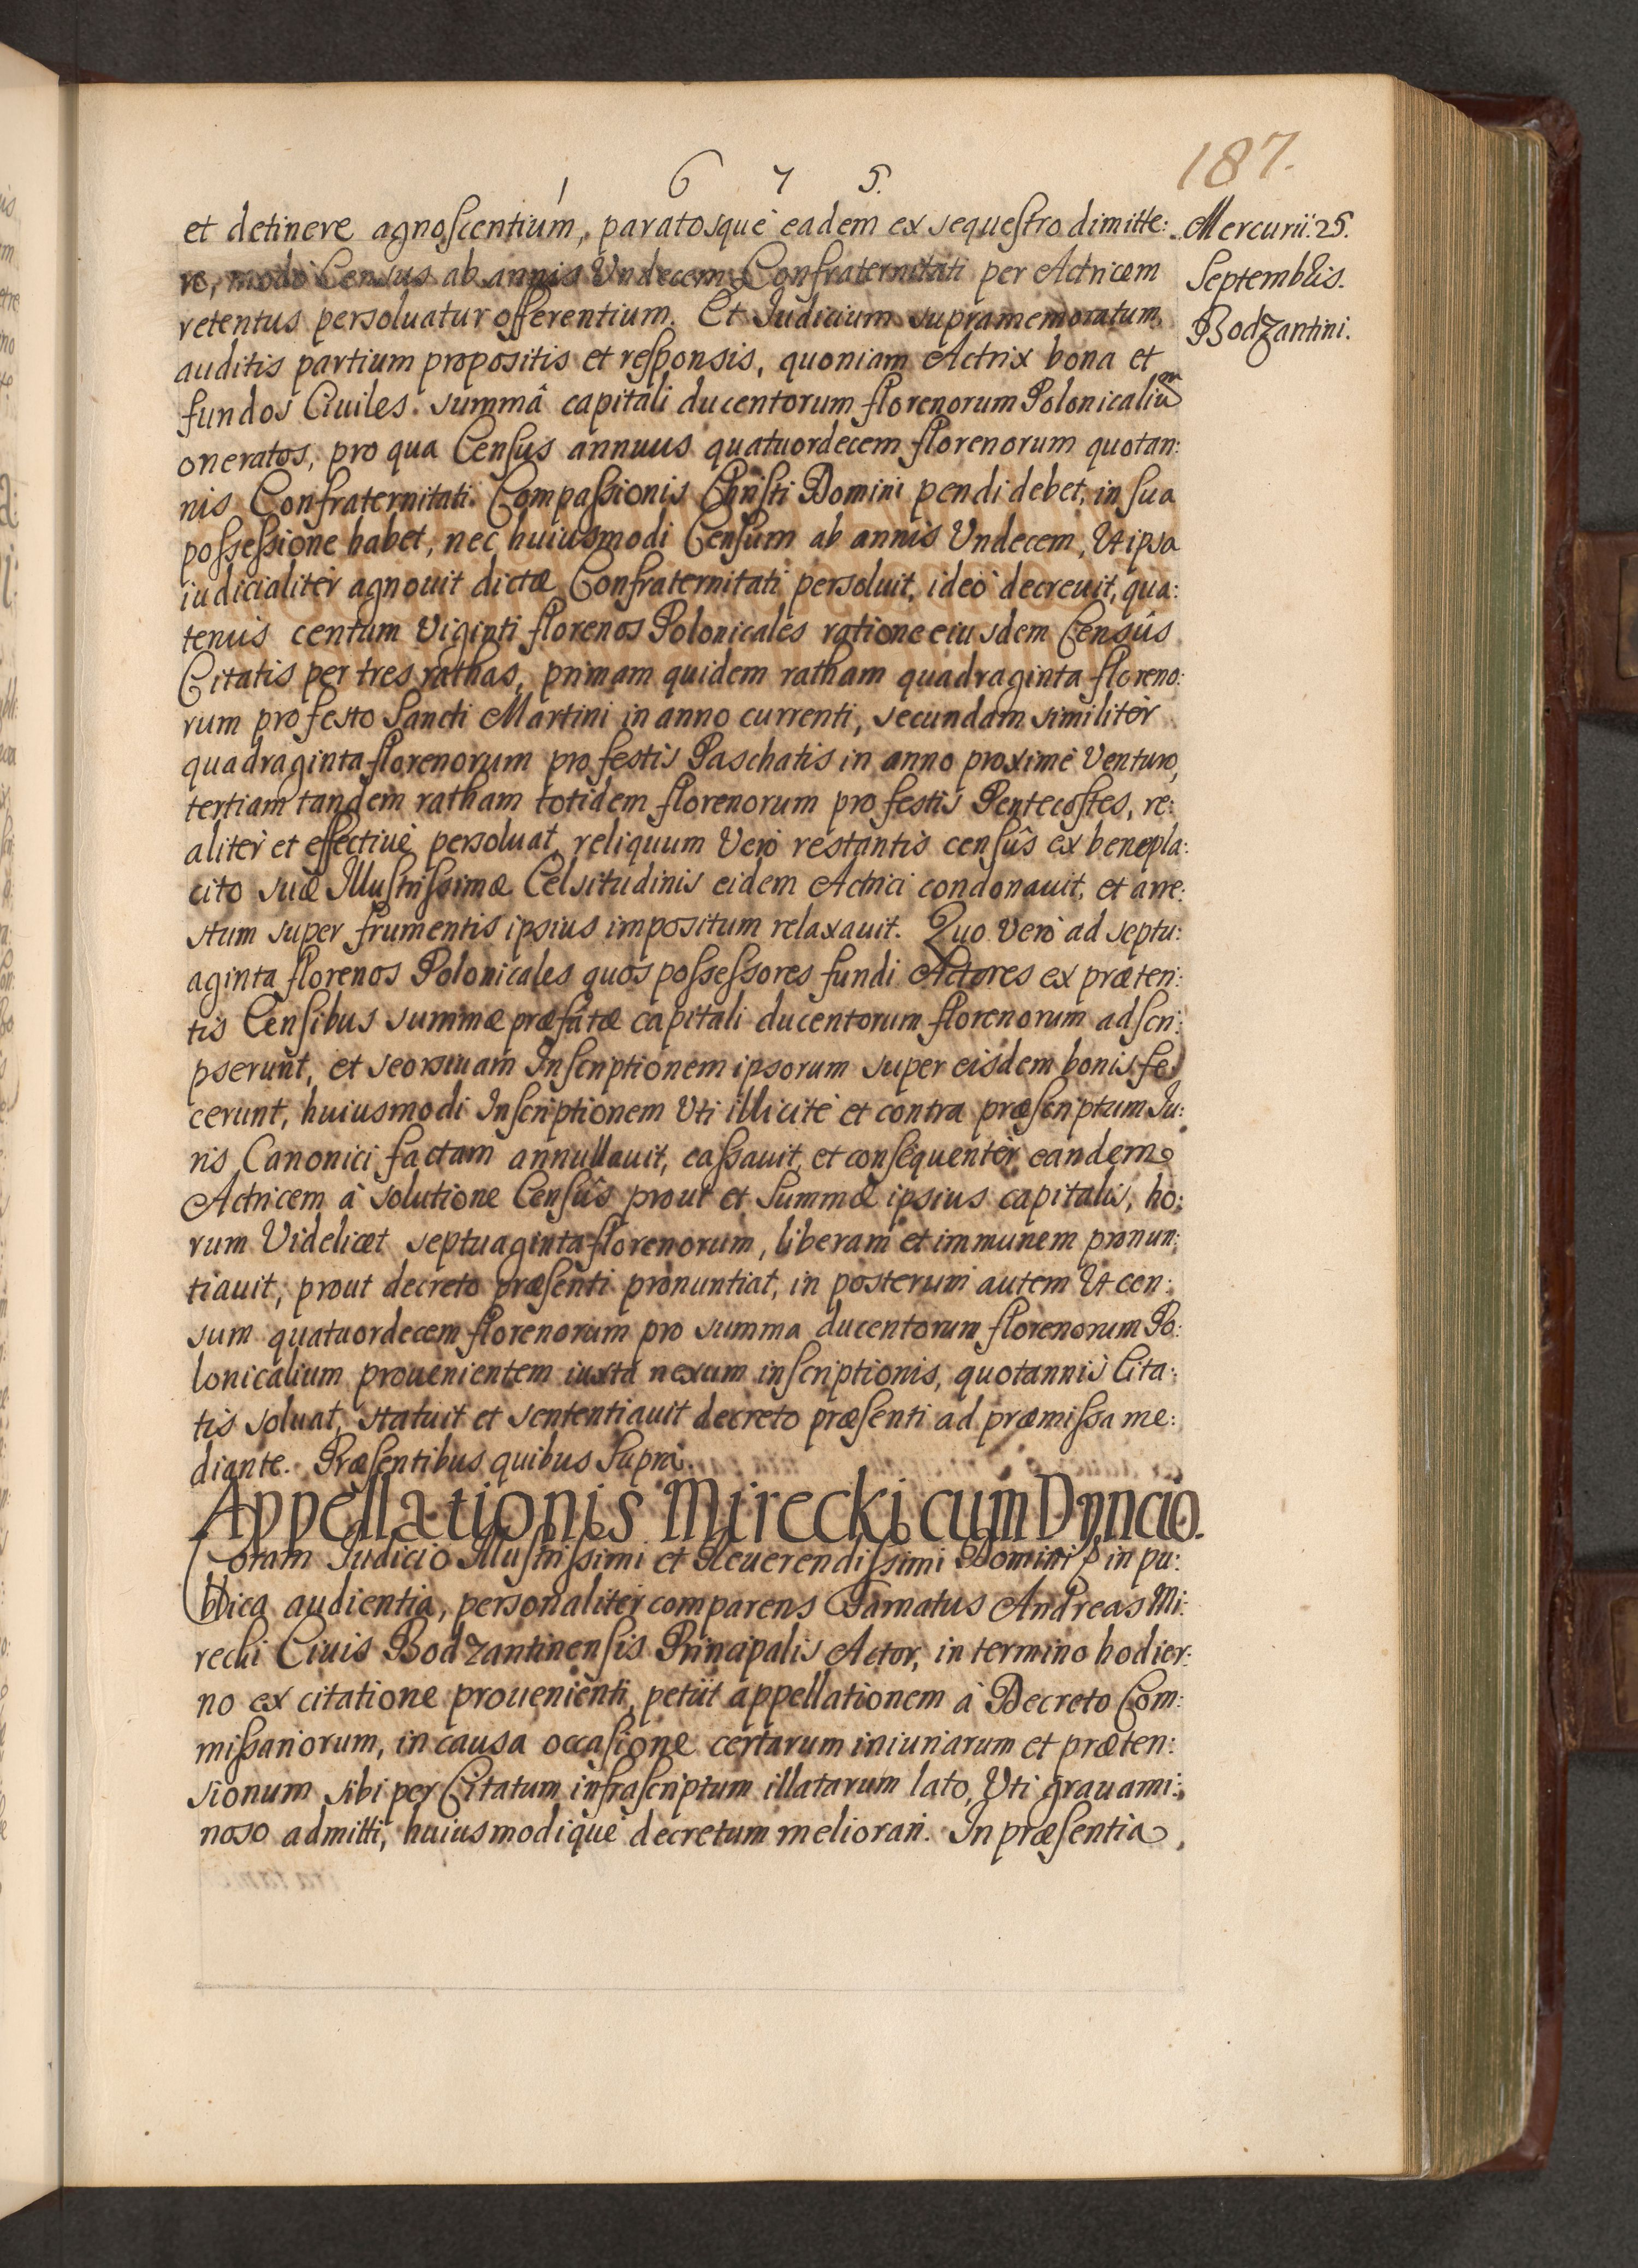 187.
1 6 7 5.
Mercurii. 25.
Septembris.
Bodzantini.
et detinere agnoscentium, paratosque eadem ex sequestro dimitte:
re, modo Census ab annis Vndecem Confraternitati per Actricem
retentus persoluatur offerentium. Et Iudicium supramemoratum,
auditis partium propositis et responsis, quoniam Actrix bona et
fundos Ciuiles summâ capitali ducentorum florenorum Polonicaliũ
oneratos, pro qua Census annuus quatuordecem florenorum quotan:
nis Confraternitati Compassionis Christi Domini pendi debet, in sua
possessione habet, nec huiusmodi Censum ab annis Vndecem, Ut ipsa
iudicialiter agnouit dictæ Confraternitati persoluit, ideo decreuit, qua:
tenus centum Viginti florenos Polonicales ratione eiusdem Censûs
Citatis per tres rathas, primam quidem ratham quadraginta floreno:
rum pro festo Sancti Martini in anno currenti, secundam similiter
quadraginta florenorum pro festis Paschatis in anno proximè Venturo,
tertiam tandem ratham totidem florenorum pro festis Pentecostes, re:
aliter et effectiuè persoluat, reliquum Vero restantis censûs ex benepla:
cito suæ Illustrissimæ Celsitudinis eidem Actrici condonauit, et arre:
stum super frumentis ipsius impositum relaxauit. Quo Vero ad septu:
aginta florenos Polonicales quos possessores fundi Actores ex præten:
tis Censibus summæ præfatæ capitali ducentorum florenorum adscri:
pserunt, et seorsiuam Inscriptionem ipsorum super eisdem bonis fe:
cerunt, huiusmodi Inscriptionem Uti illicitè et contra præscriptum Iu:
ris Canonici factam annullauit, cassauit, et consequenter eandem
Actricem à solutione Censûs prout et Summæ ipsius capitalis, ho:
rum Videlicet septuaginta florenorum, liberam et immunem pronun:
tiauit, prout decreto præsenti pronuntiat, in posterum autem Ut cen:
sum quatuordecem florenorum pro summa ducentorum florenorum Po:
lonicalium prouenientem iuxta nexum inscriptionis, quotannis Cita:
tis soluat, statuit et sententiauit decreto præsenti ad præmissa me:
diante. Præsentibus quibus Supra.
Appellationis Mirecki cum Dyncio.
Coram Iudicio Illustrissimi et Reuerendissimi Domini in pu:
blica audientia, personaliter comparens Famatus Andreas Mi:
recki Ciuis Bodzantinensis Principalis Actor, in termino hodier:
no ex citatione prouenienti, petiit appellationem à Decreto Com:
missariorum, in causa occasione certarum iniuriarum et præten:
sionum sibi per Citatum infrascriptum illatarum lato, Uti grauami:
noso admitti, huiusmodique decretum meliorari. In præsentia